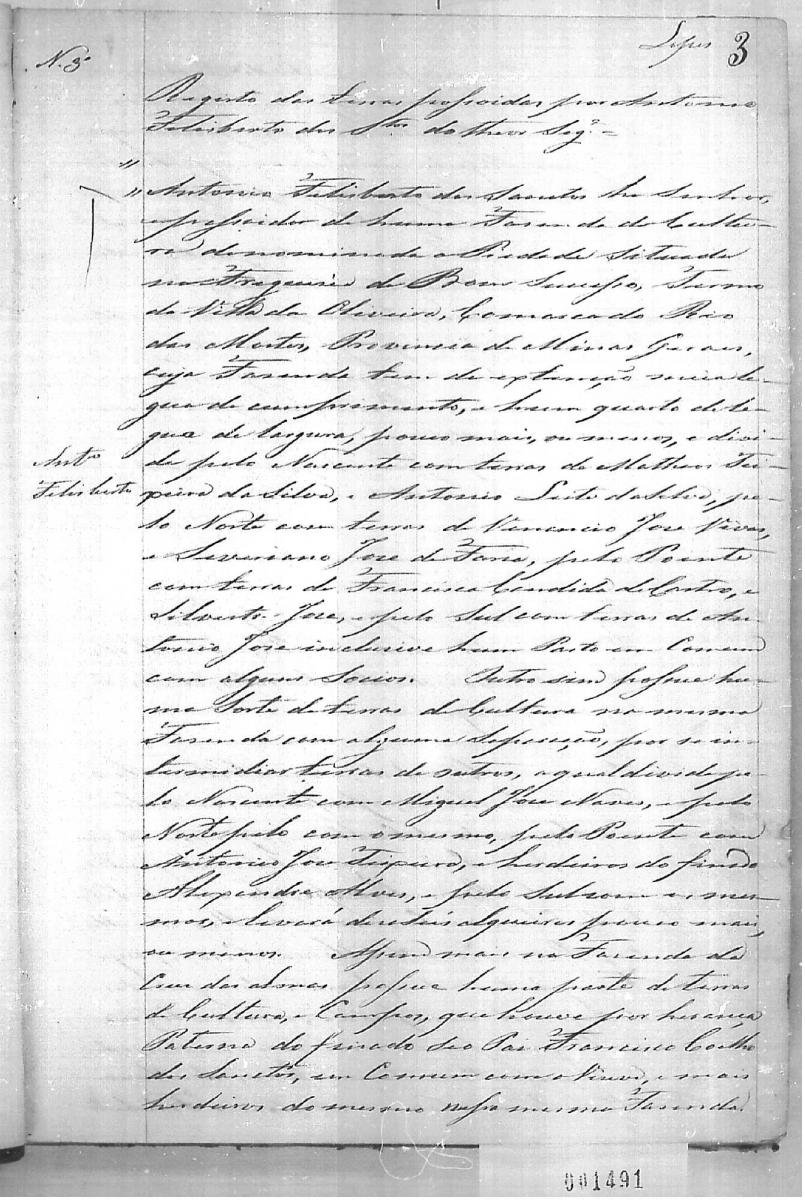 Lopes 3
N. 3
Registo das terras possoidas por Antonio
Felisberto dos Stos do theor Seg.e =
"
" Antonio Felisberto dos Sanctos he Senhor,
e possoidor de huma Fasenda de Cultu-
ra denominada a Piedade Situada
na Freguesia do Bom Sucesso, Termo
da Villa da Oliveira, Comarca do Rio
das Mortes, Provincia de Minas Geraes,
cuja Fasenda tem de extenção meia le-
gua de cumprimento, e hum quarto de le-
gua de largura, pouco mais, ou menos, e divi-
de pelo Nascente com terras de Matheos Tei-
Ant.o
Felisberto
xeira da Silva, e Antonio Leite da Silva, pe-
lo Norte com terras de Venancio Jose Vivas,
e Severiano Jose de Faria, pelo Poente
com terras de Francisca Candida de Castro, e
Silverio Jose, e pelo Sul com terras de An-
tonio Jose inclusive hum Pasto em Comum
com alguns Socios. Outro sim possue hu-
ma Sorte de terras de Cultura na mesma
Fasenda com alguma Separação, por se in-
termidiar terras de outros, a qual divide pe-
lo Nascente com Miguel Jose Naves, e pelo
Norte pelo com o mesmo, pelo Poente com
Antonio Jose Teixeira, e herdeiros do finado
Alexandre Alves, e pelo Sul com os mes-
mos, e levará deseseis alqueires pouco mais,
ou menos. Assim mais na Fasenda da
Crus das almas possue huma parte de terras
de Cultura, e Campos, que houve por herança
Paterna do finado seo Pai Francisco Coelho
dos Sanctos, em Comum com a Viuva, e mais
herdeiros do mesmo nessa mesma Fasenda.
001491